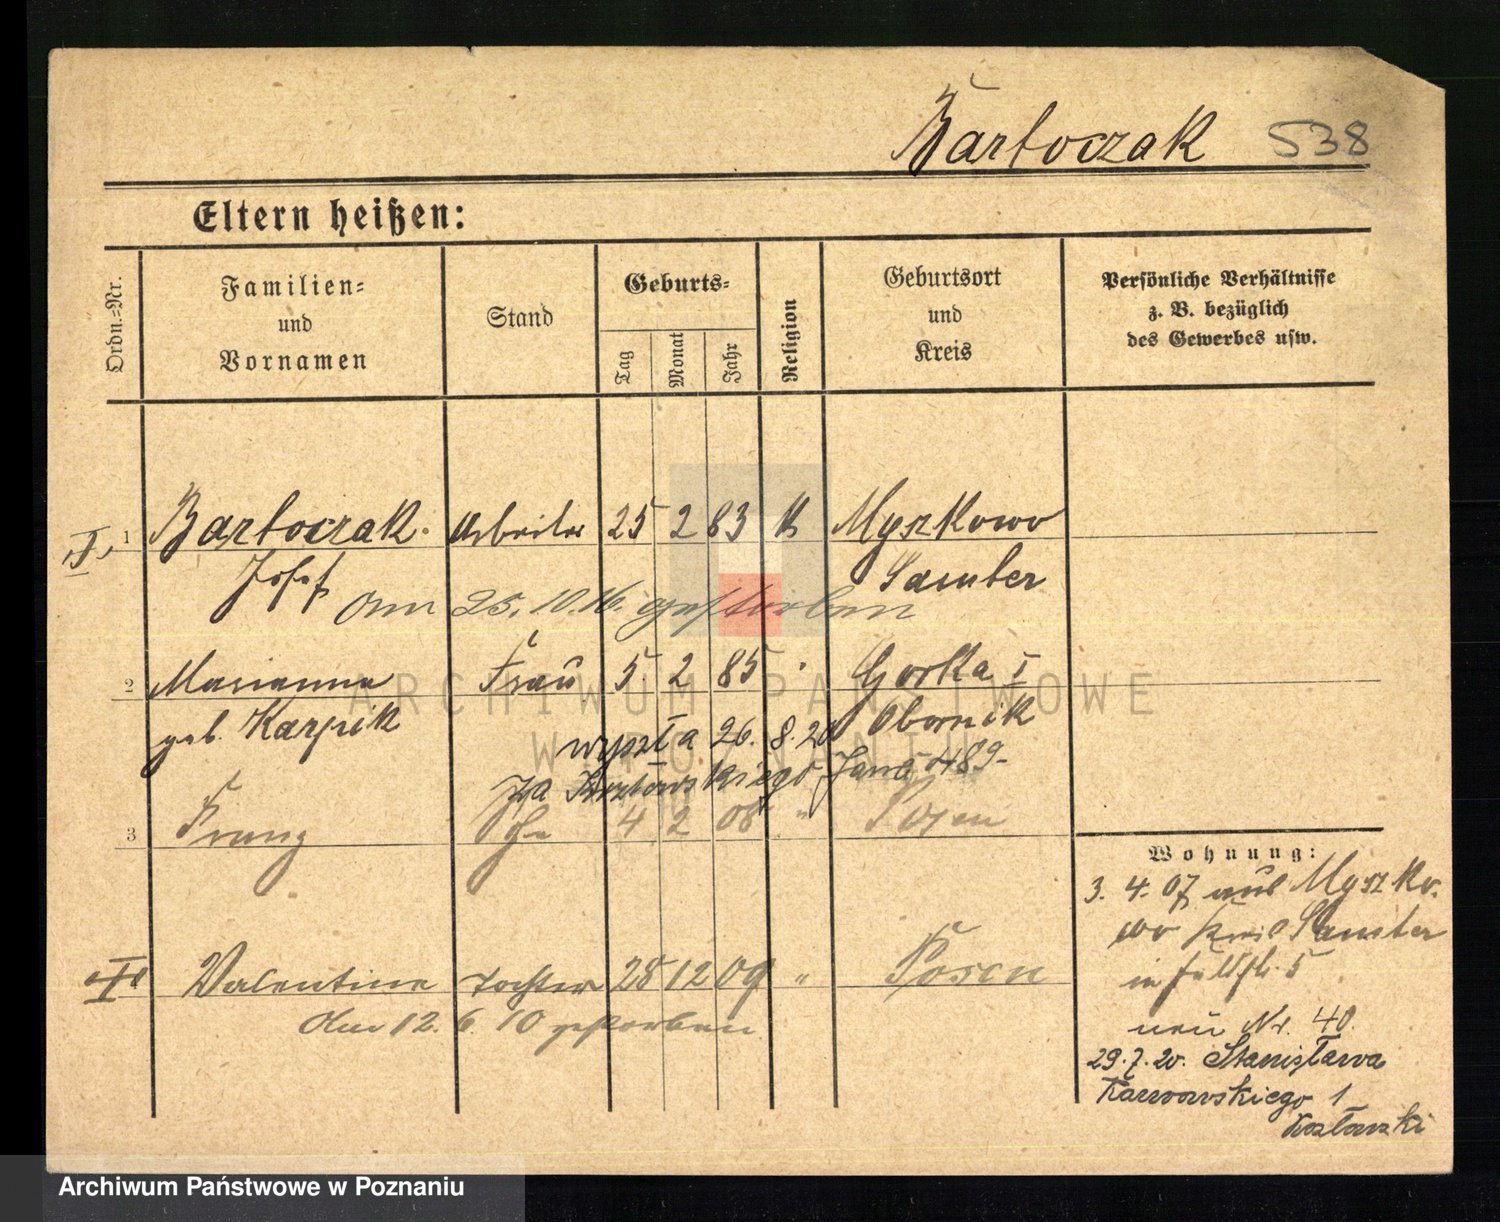 Bartoczak 538
Eltern heißen:
Ordn.-Nr.
Familien-
und
Vornamen
Stand
Geburts-
Tag
Monat
Jahr
Religion
Geburtsort
und
Kreis
Persönliche Verhältnisse
z. B. bezüglich
des Gewerbes usw.
1 Bartoczak. Arbeiter 25 2 83 k Myszkowo
Josef Samter
Am 25. 10. 16. gestorben
2 Marianna Frau 5. 2 85 Gorka I
geb. Karpik Obornik
wyszła 26. 8. 20
489
3 Franz 4 2 08 " Posen
Wohnung:
3. 4. 07 aus Myszko-
wo Kreis Samter
in 5
neu Nr. 40.
29.7.20. Stanisława
Karwowskiego 1
Kozłowski
Valentine Tochter 28 12 09 " Posen
Am 12. 6. 10 gestorben
ARCHIWUM PAŃSTWOWE
W POZNANIU
Archiwum Państwowe w Poznaniu